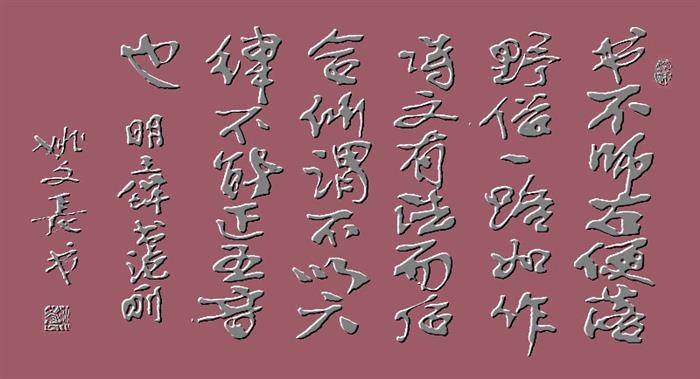 书不师古便落
野俗一路如作
诗文有法而后
合所谓不以六
律不能正五音
也 明王铎书论则
文長书